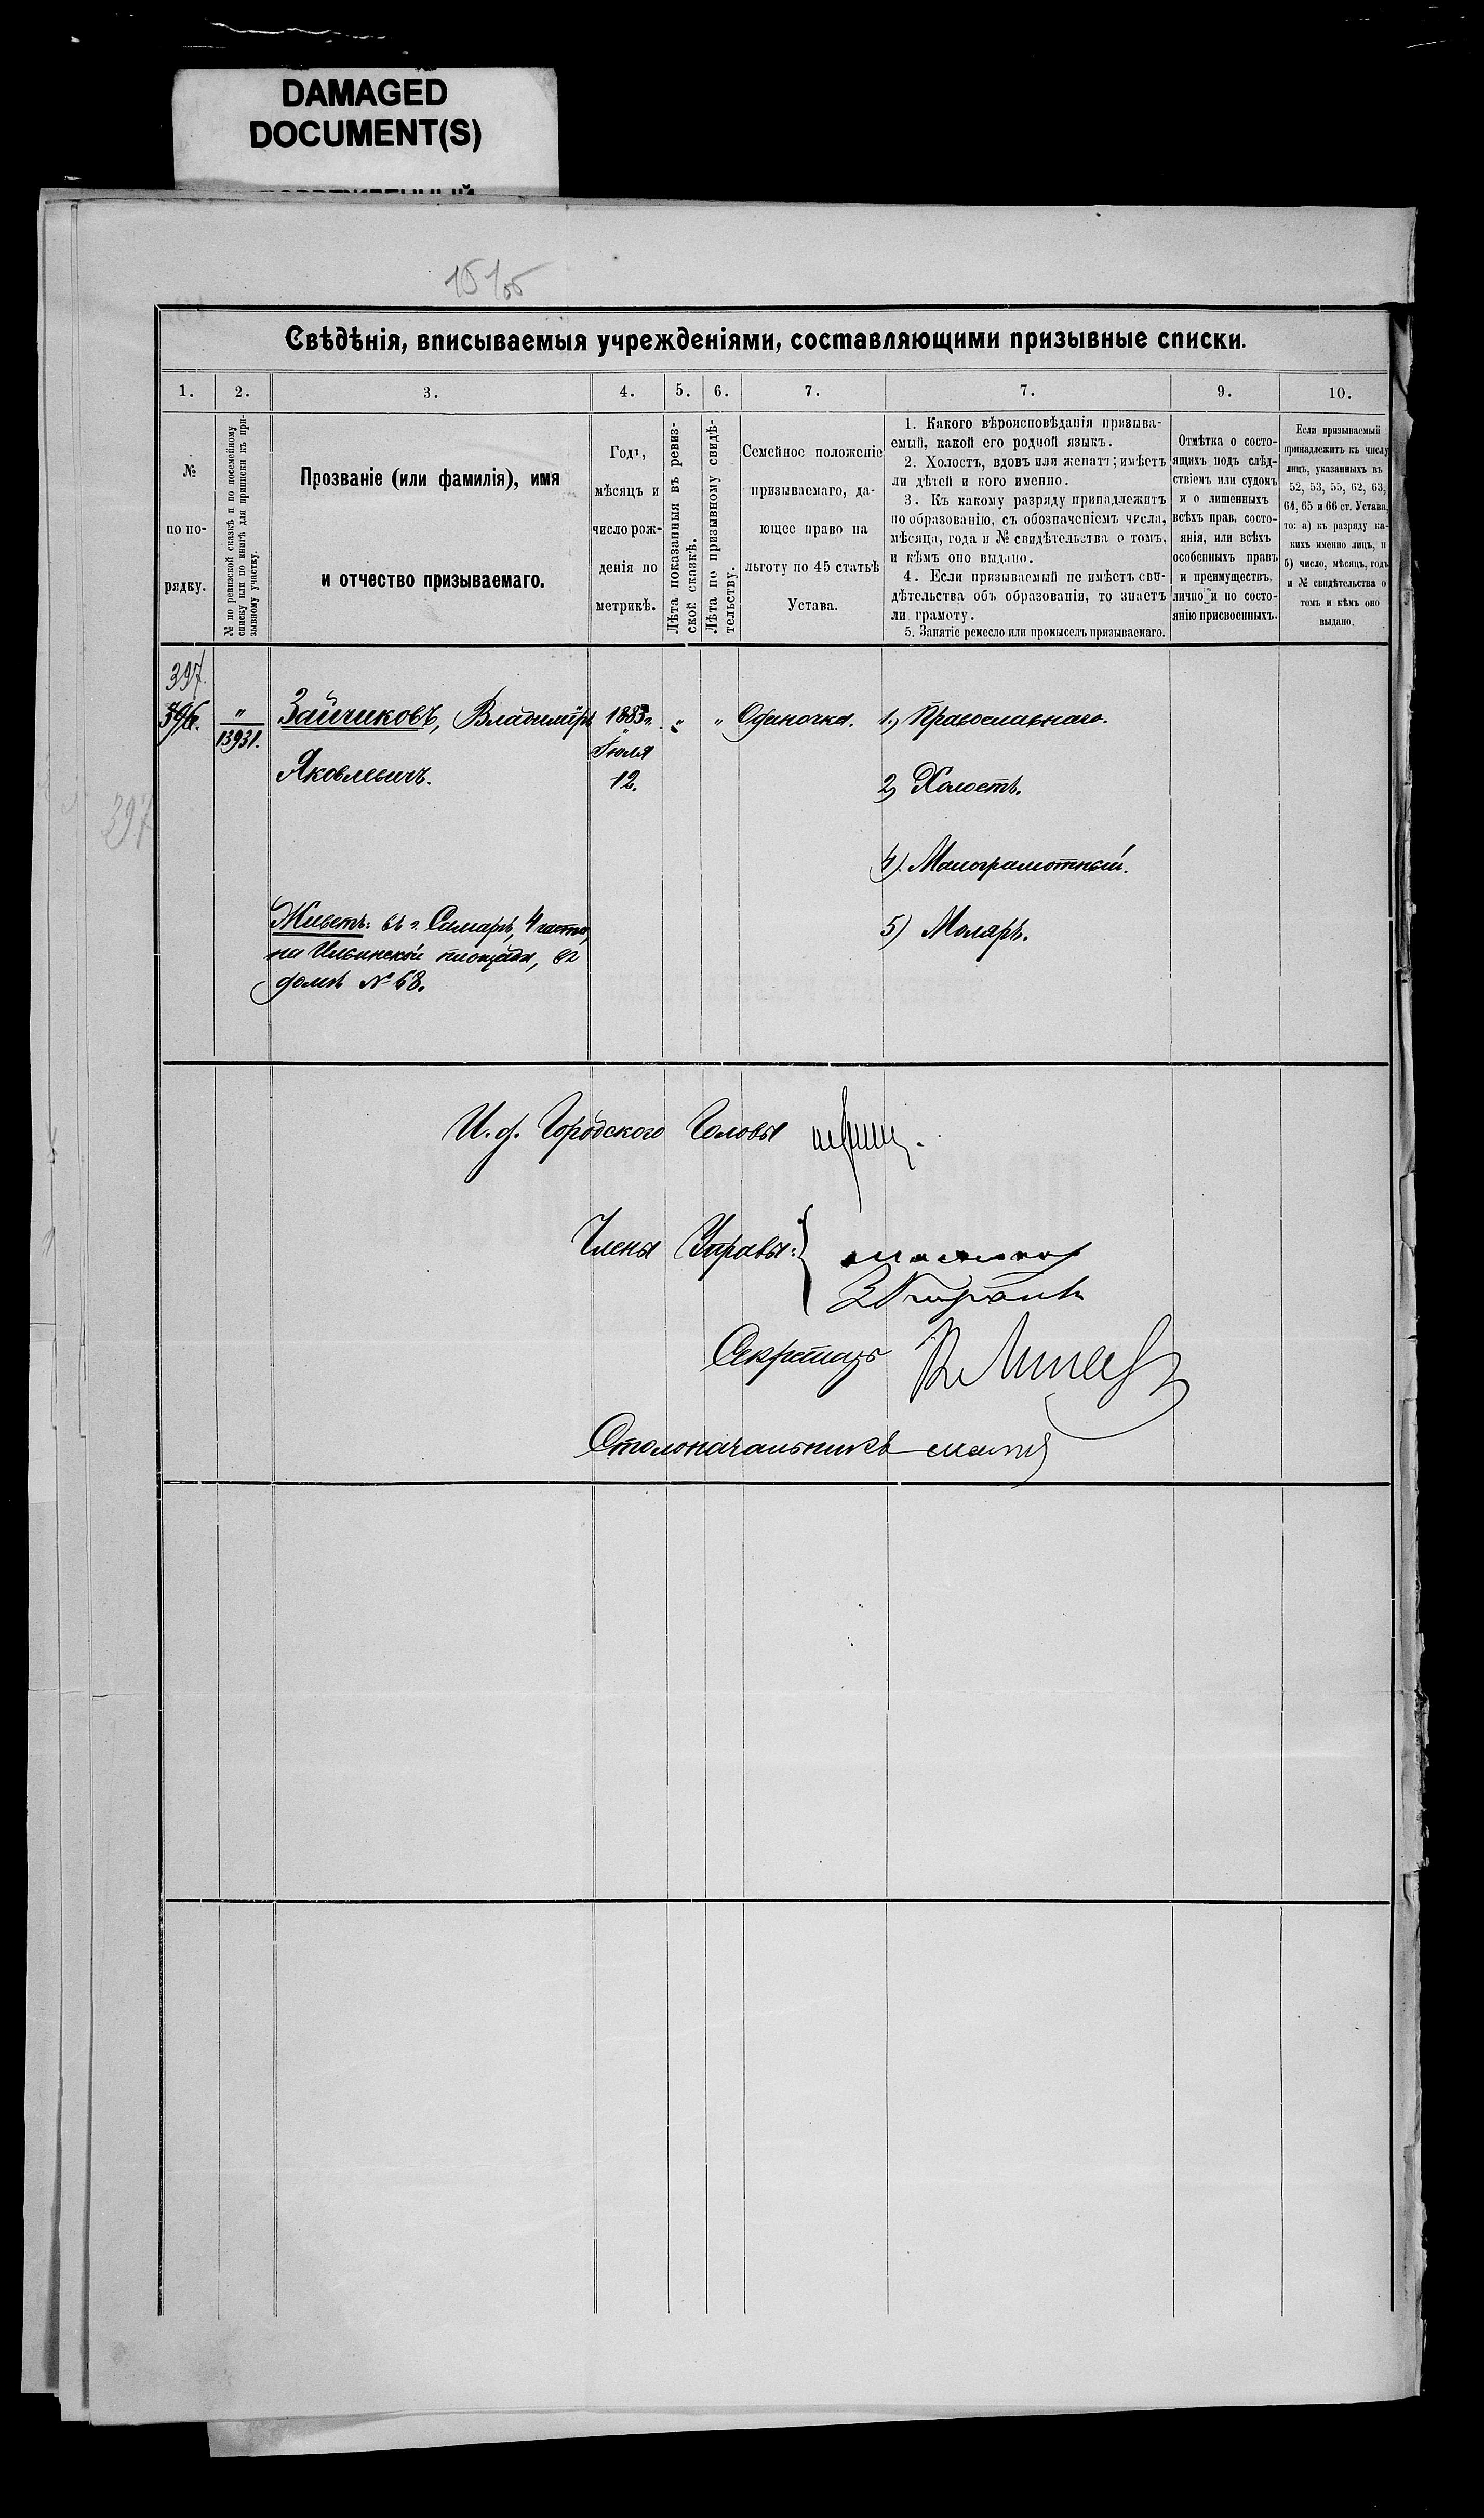 DAMAGED
DOCUMENT(S)
15
Свѣдѣнія, вписываемыя учрежденіями, составляющими призывные списки.
1. 2. 3. 4. 5. 6. 7. 7. 9. 10.
№
по по-
рядку.
№ по ревизской сказкѣ и по посемейному
списку или по книгѣ для приписки къ при-
зывному участку.
Прозваніе (или фамилія), имя
и отчество призываемаго.
Годъ,
мѣсяцъ и
число рож-
денія по
метрикѣ.
Лѣта показанныя въ ревиз-
ской сказкѣ.
Лѣта по призывному свидѣ-
тельству.
Семейное положеніе
призываемаго, да-
ющее право на
льготу по 45 статьѣ
Устава.
1. Какого вѣроисповѣданія призыва-
емый, какой его родной языкъ.
2. Холостъ, вдовъ или женатъ; имѣетъ
ли дѣтей и кого именно.
3. Къ какому разряду принадлежитъ
по образованію, съ обозначеніемъ числа,
мѣсяца, года и № свидѣтельства о томъ,
и кѣмъ оно выдано.
4. Если призываемый не имѣетъ сви-
дѣтельства объ образованіи, то знаетъ
ли грамоту.
5. Занятіе ремесло или промыселъ призываемаго.
Отмѣтка о состо-
ящихъ подъ слѣд-
ствіемъ или судомъ
и о лишенныхъ
всѣхъ прав, состо-
янія, или всѣхъ
особенныхъ правъ
и преимуществъ,
лично и по состо-
янію присвоенныхъ.
Если призываемый
принадлежитъ къ числу
лицъ, указанныхъ въ
52, 53, 55, 62, 63,
64, 65 и 66 ст. Устава,
то: а) къ разряду ка-
кихъ именно лицъ, и
б) число, мѣсяцъ, годъ
и № свидѣтельства о
томъ и кѣмъ оно
выдано.
397.
396. " Зайчиковъ, Владиміръ 1883 г. " " Одиночка. 1.) Православнаго.
13931. Іюля
Яковлевичъ. 12. 2) Холостъ.
397
4). Малограмотный.
Живетъ: въ г. Самарѣ, 4 части, 5) Маляръ.
на Ильинской площади, въ
домѣ № 68.
И. д. Городского Головы
Члены Управы:
Секретарь
Столоначальникъ